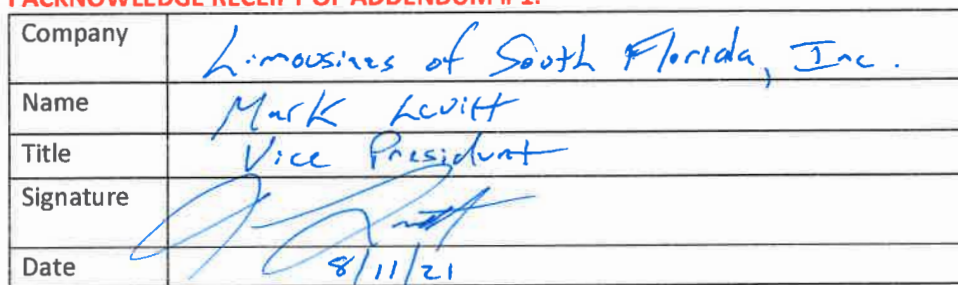 I ACKNOWLEDGE RECEIPT OF ADDENDUM # 1.
Company Limousines of South Florida, Inc.
Name Mark Levitt
Title Vice President
Signature
Date 8/11/21